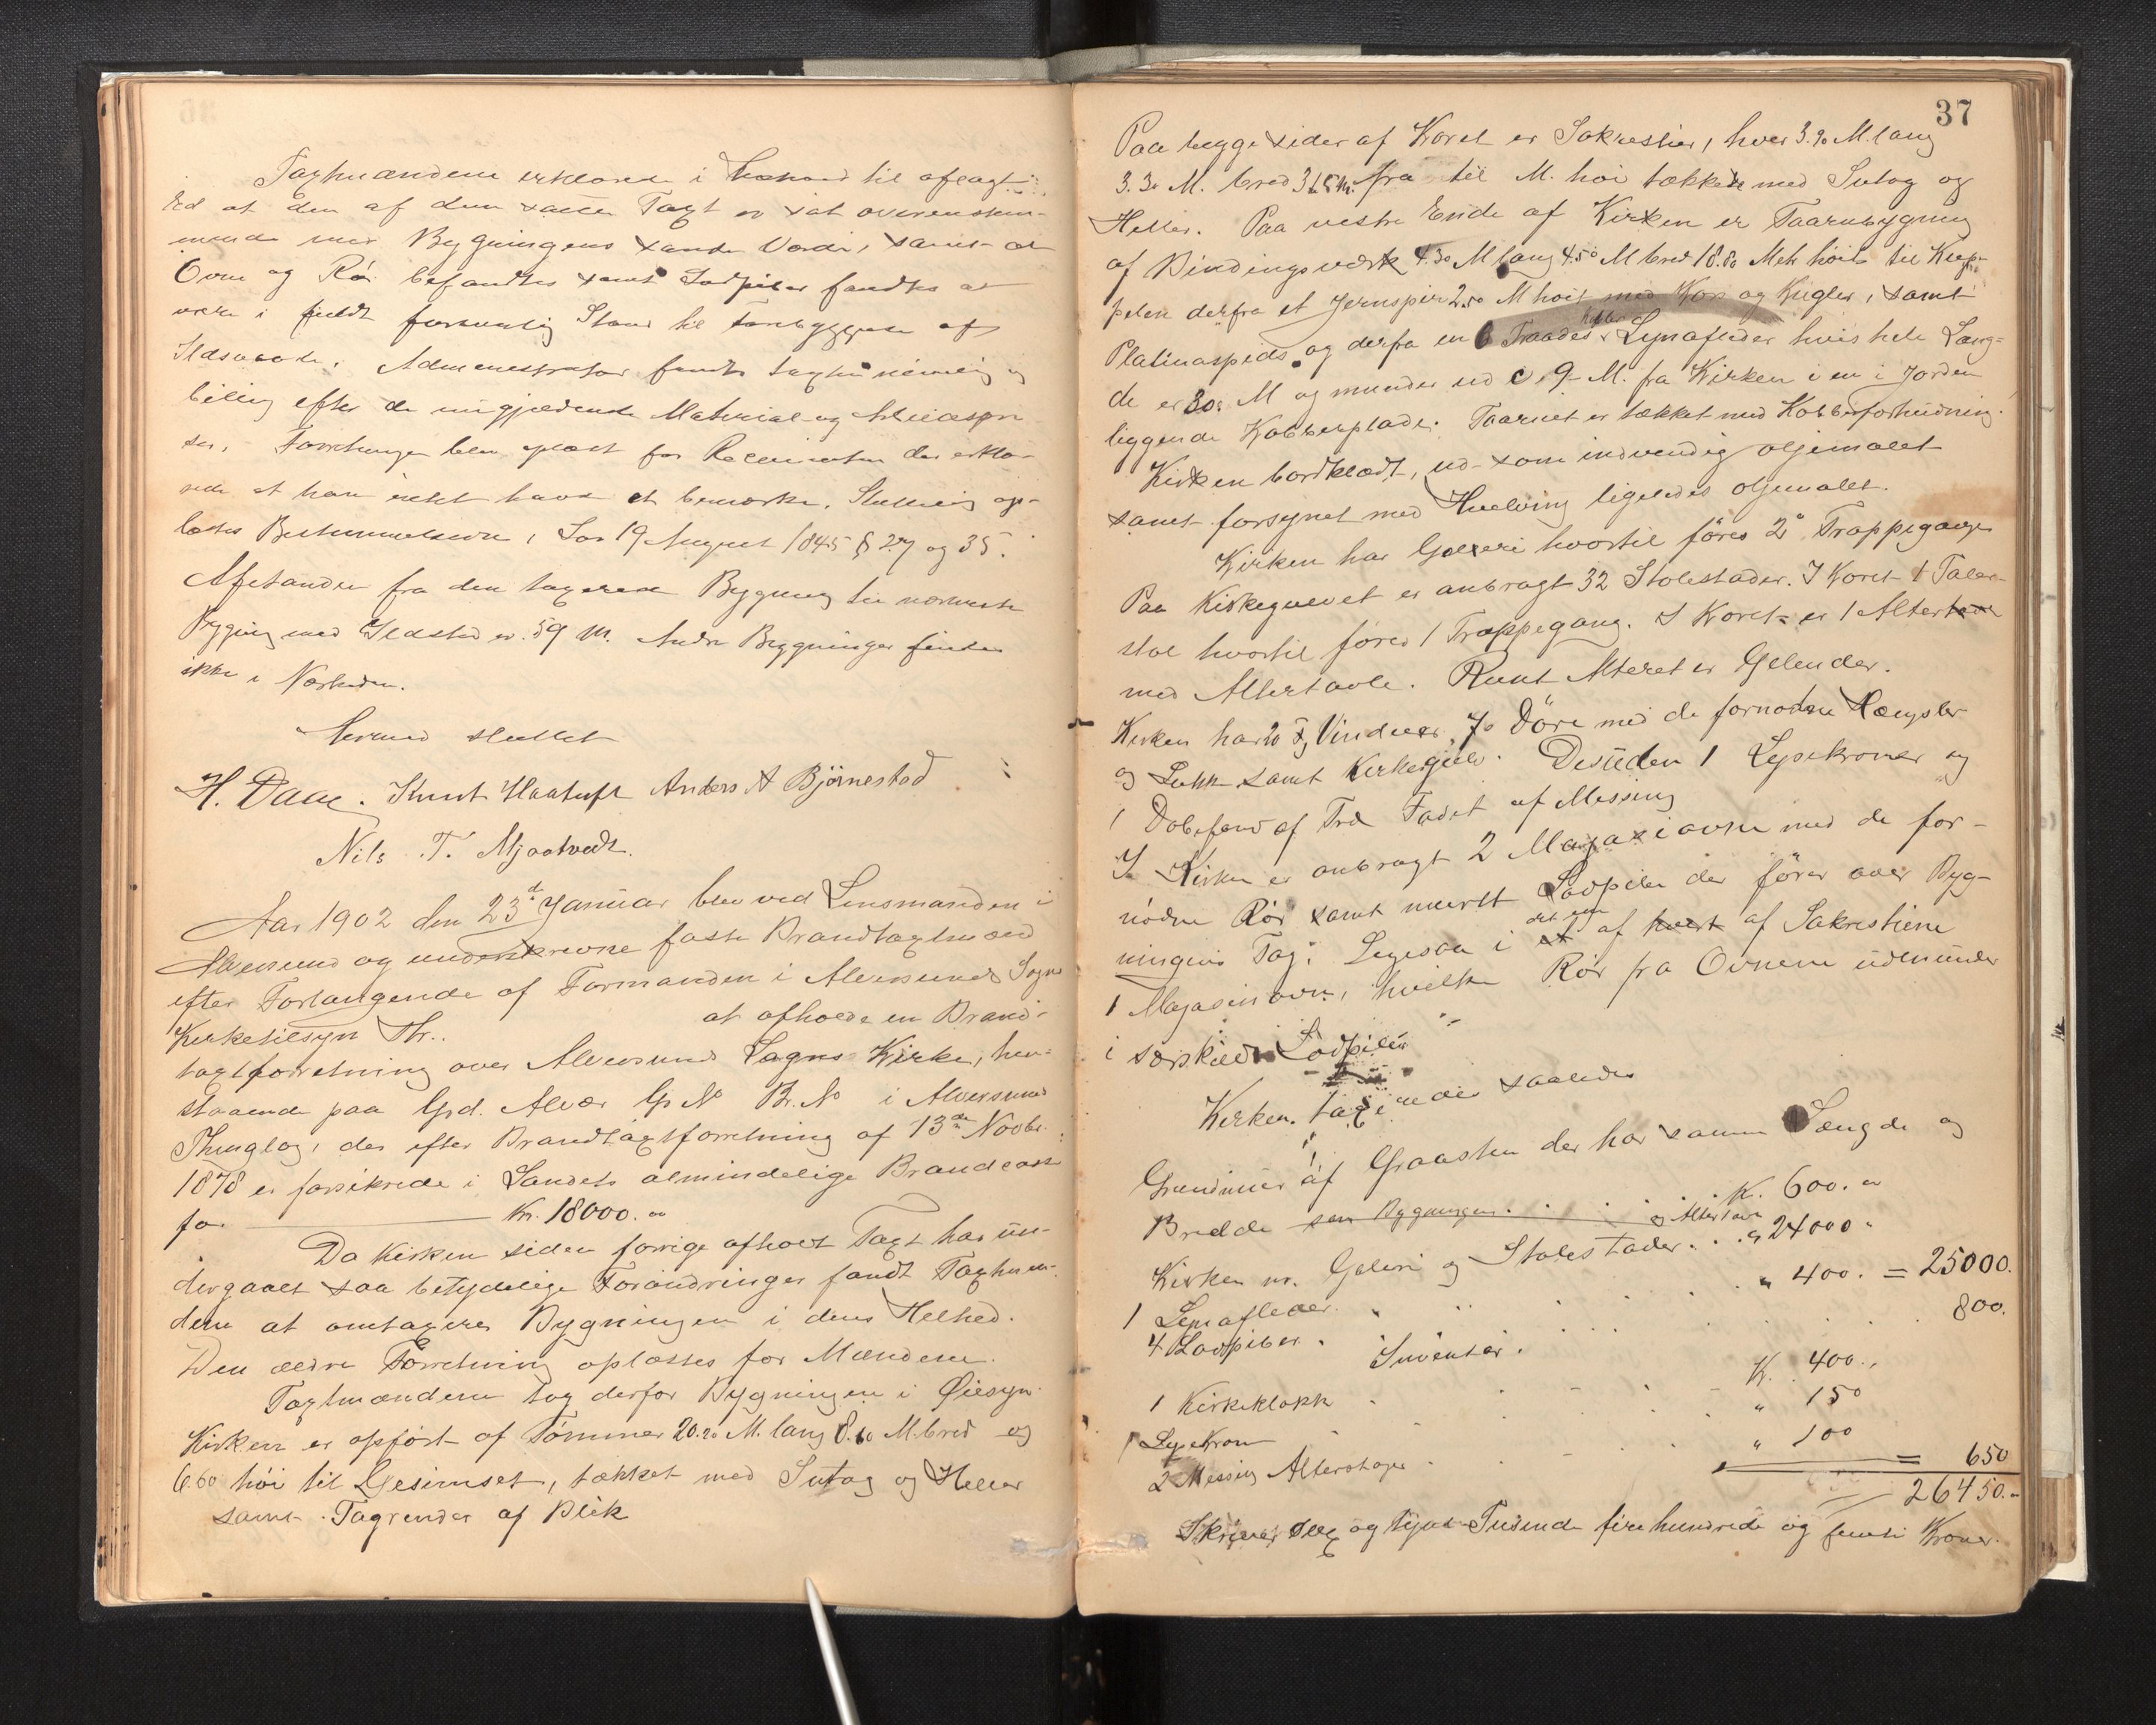 Taxtmændene erklærede i Henhold til aflagt
Ed at den af dem satte Taxt er sat overensstem-
mende med Bygningens sande Værdi, samt at
Ovne og Rør befandtes samt Lodpiber fandtes at
være i fuldt forsvarlig Stand til Forebyggelse af
Ildsvaade. Administrator fandt Taxten rimelig og
billig efter de nugjældende Material og Arbeidspri
ser. Forretningen blev oplæst for Recvirenten der erklæ-
rede at han intet havde at bemærke. Slutteig op-
læstes Bestemmelserne i Lov 19 August 1845 § 27 og 35.
Afstanden fra den taxerede Bygning til nærmeste
Bygning med Ildsted er 59 M. Andre Bygninger findes
ikke i Nærheden.
Hermed sluttet
H. Daae. Knut Haatuft Anders A Bjørnestad
Nils T. Mjaatvedt.
Aar 1902 den 23de Januar blev ved Lensmanden i
Alversund og underskrevne faste Brandtaxtmænd
efter Forlangende af Formanden i Alversunds Sogns
Kirketilsyn Hr. at afholde en Brand-
taxtforretning over Alversund Sogns Kirke, hen-
staaende paa Grd. Alvær G. No Br. No i Alversund
Thinglag, der efter Brandtaxtforretning af 13de Novbr.
1878 er forsikrede i Landets almindelige Brandcasse
for Kr. 18000.00
Da Kirken siden forrige afholdt Taxt har un-
dergaaet saa betydelige Forandringer fandt Taxtmæn-
dene at omtaxere Bygningen i dens Helhed.
Den ældre Forretning oplæstes for Mændene.
Taxtmændene tog derfor Bygningen i Øiesyn.
Kirken er opført af Tømmer 20.20 M. lang 8.60 M. bred og
6.60 høi til Gesimset, tækket med Sutag og Heller
samt Tagrender af Blik
37
Paa begge sider af Koret er Sakrestier, hver 3.90 M. lang
3.30 M. bred 3 15 M. fra til M. høi tækket med Sutag og
Heller. Paa vestre Ende af Kirken er Taarnbygning
af Bindingsværk 4.30 M lang 4.50 M bred 18.80 Met høit til Kup-
pelen derfra et Jernspir 2.50 M høit med Kors og Kugler, samt
Platinaspids og derfra en 6 Traades Kobber Lynafleder hvis hele Læng-
de er 30. M og munder ud c. 9 M. fra Kirken i en i Jorden
liggende Kobberplade. Taarnet er tækket med Kobberforhudning.
Kirken bordklædt, ud- som indvendig oljemalet
samt forsynet med Hvelving ligeledes oljemalet.
Kirken har Galleri hvortil føres 2 Trappegange
Paa Kirkegulvet er anbragt 32 Stolestader. I Koret 1 Taler-
stol hvortil føres 1 Trappegang. I Koret er 1 Alter
med Altertavle. Rundt Alteret er Gelender.
Kirken har 20 Fg Vinduer, 7 Døre med de fornødne Hængsler
og Lukk samt Kirkegulv. Desuden 1 Lysekroner og
1 Døbefond af Træ Fadet af Messing
I Kirken er anbragt 2 Magasinovne med de for-
nødne Rør samt muret Lodpibe der fører over Byg-
ningens Tag. Ligesaa i det ene af hvert af Sakrestierne
1 Magasinovn, hvilke Rør fra Ovnene udmunder
i særskildt Lodpibe
Kirken taxeredes saaledes
Grundmur af Graasten der har samme Længde og
Bredde som Bygningen. K. 600.00
og Altertavle
Kirken m. Galeri og Stolestader. " 24000 "
1 Lynafleder. " 400. = 25000.
4 Lodpiber. 800.
Inventar.
1 Kirkeklokke K. 400.
1 Lysekrone " 150
2 Messing Alterstager " 100
= 650
26450.-
Skriver sex og tyve Tusinde fire hundrede og femti Kroner.